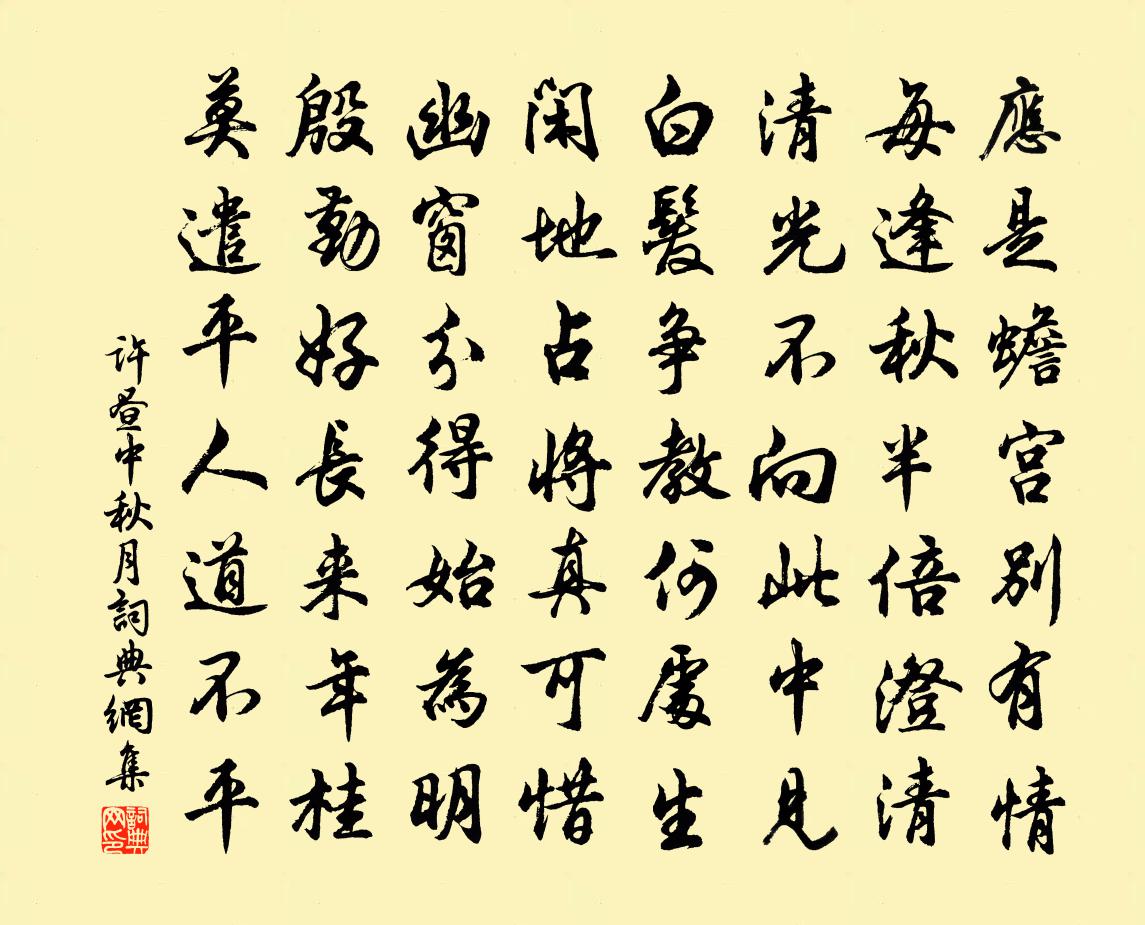 應是蟾宫別有情
每逢秋半倍澄清
清光不向此中見
白髮争教何處生
閑地占將真可惜
幽窗分得始為明
殷勤好長来年桂
莫遣平人道不平
許晝中秋月詞典網集
詞典网印